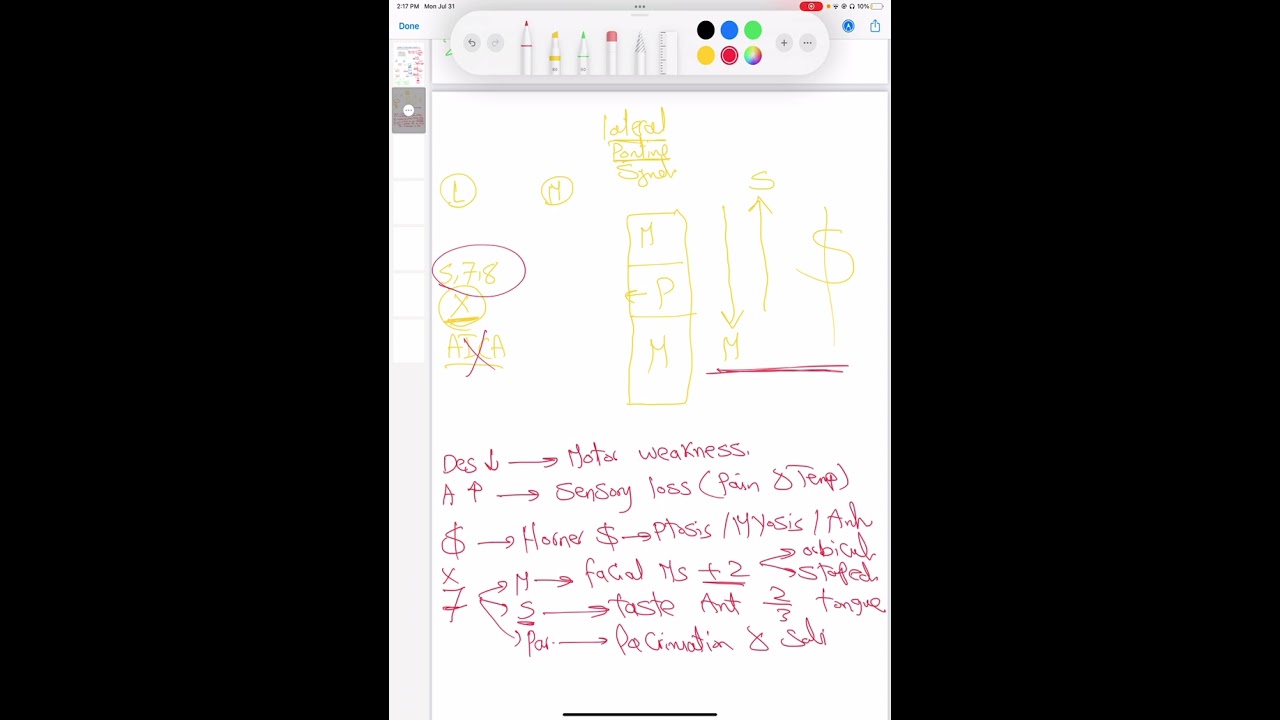 2:17 PM Mon Jul 31
10%
Done
80
50
lateral
Pontine
Synd
L M
S
M
5,7,8
← P
X
AICA
M
M
$
Des ↓ → Motor weakness.
A ↑ → Sensory loss (Pain & Temp)
$ → Horner $ → Ptosis / MYosis / Anh
X
7 → M → facial Ms + 2 → orbicul
→ staped
S → taste Ant 2/3 tongue
Par. → Lacrimation & Sali